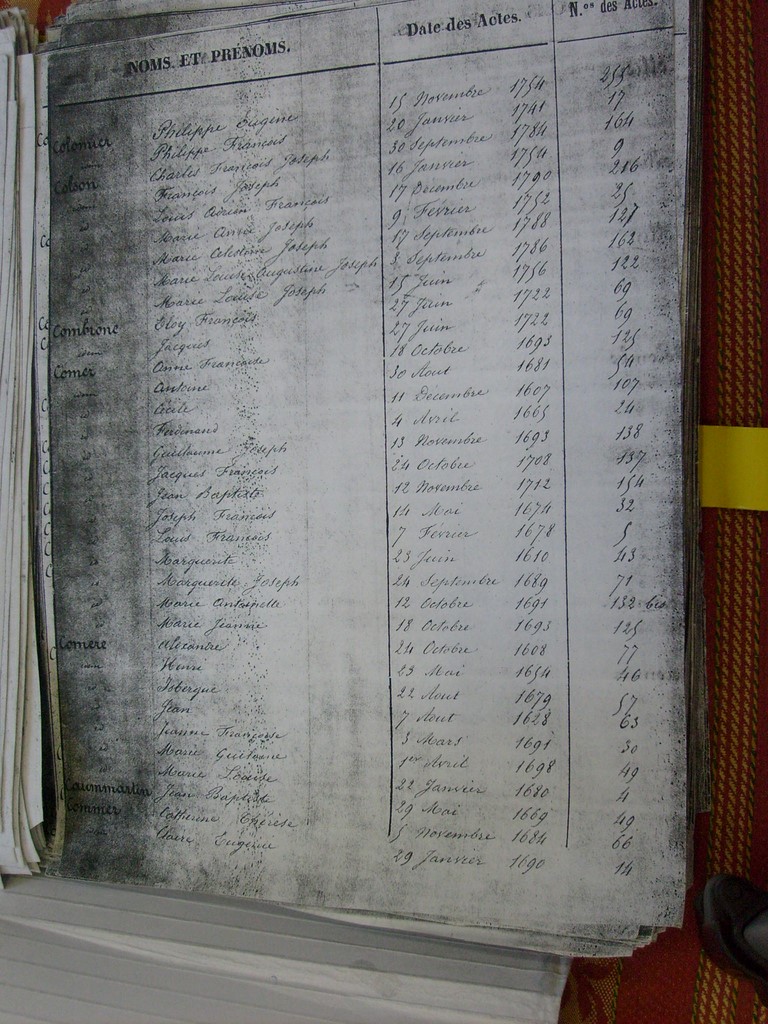 NOMS ET PRÉNOMS. Date des Actes. N.os des Actes.
Colomier Philippe Eugène 15 Novembre 1754 255
Philippe François 20 Janvier 1741 17
Colson Charles François Joseph 30 Septembre 1784 164
François Joseph 16 Janvier 1754 9
Louis Adrien François 17 Decembre 1790 216
Marie Anne Joseph 9 Février 1752 25
Marie Celestine Joseph 17 Septembre 1788 127
Marie Louise Augustine Joseph 3 Septembre 1786 162
Marie Louise Joseph 15 Juin 1756 122
Combrone Eloy François 27 Juin 1722 69
idem Jacques 27 Juin 1722 69
Comer Anne Françoise 18 Octobre 1693 125
Antoine 30 Aout 1681 54
Cécile 11 Decembre 1607 107
Ferdinand 4 Avril 1665 24
Guillaume Joseph 13 Novembre 1693 138
Jacques François 24 Octobre 1708 137
Jean Baptiste 12 Novembre 1712 154
Joseph François 14 Mai 1674 32
Louis François 7 Février 1678 5
Marguerite 23 Juin 1610 43
Marguerite Joseph 24 Septembre 1689 71
Marie Antoinette 12 Octobre 1691 132 bis
Marie Jeanne 18 Octobre 1693 125
Comère Alexandre 24 Octobre 1608 77
Henri 23 Mai 1654 46
Isbergue 22 Aout 1679 57
Jean 7 Aout 1628 63
Jeanne Françoise 3 Mars 1691 30
Marie Guilaine 1er Avril 1698 49
Marie Louise 22 Janvier 1680 4
Caummartin Jean Baptiste 29 Mai 1669 49
Commer Catherine Thérèse 5 Novembre 1684 66
Claire Eugenie 29 Janvier 1690 14